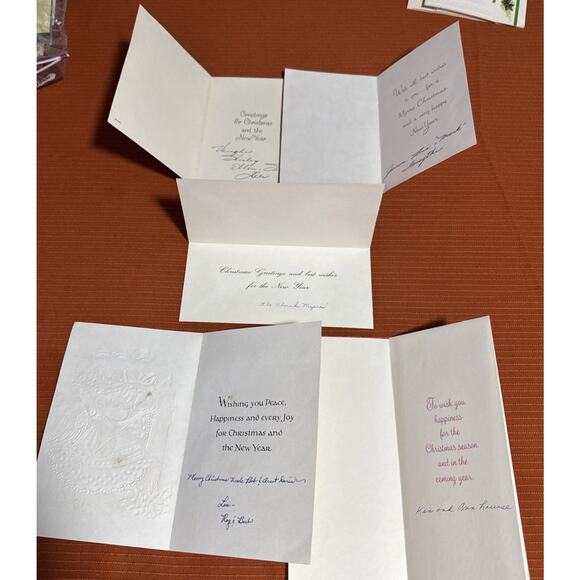 Greetings
for Christmas
and the
New Year
With all best wishes
to you for a
Merry Christmas
and a very happy
New Year
Christmas Greetings and best wishes
for the New Year
The Chuck Myers'
Wishing you Peace,
Happiness and every Joy
for Christmas and
the New Year
Merry Christmas Uncle Bob & Aunt
Love
To wish you
happiness
for the
Christmas season
and in the
coming year
Ken and Ann